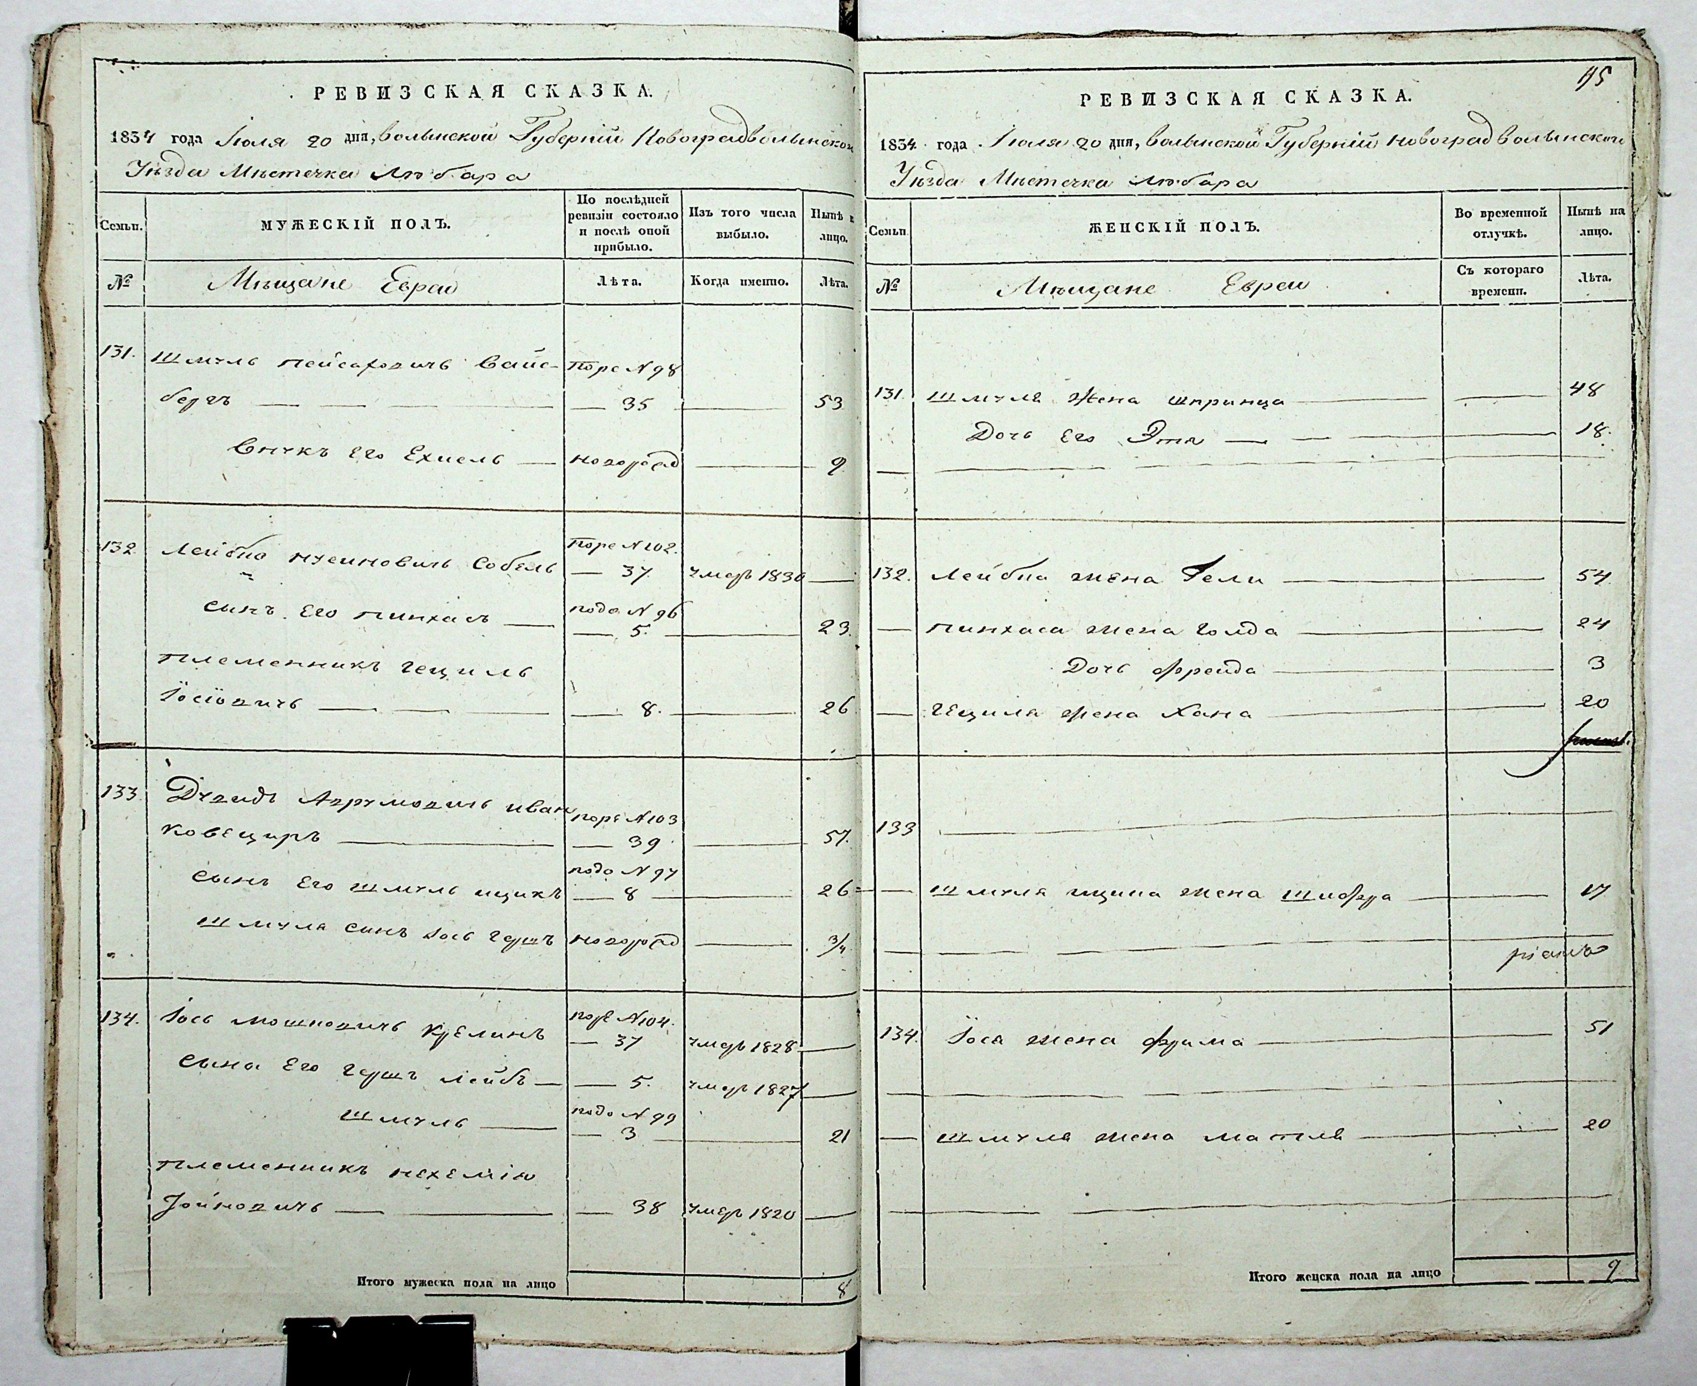 РЕВИЗСКАЯ СКАЗКА.
1834 года Іюля 20 дня, Волынской Губерніи Новоградволынского
Уѣзда Мѣстечка Любара
Семьи.
МУЖЕСКІЙ ПОЛЪ.
По послѣдней ревизіи состояло и послѣ оной прибыло.
Изъ того числа выбыло.
Нынѣ на лицо.
№
Мѣщане Евреи
Лѣта.
Когда именно.
Лѣта.
131. Шмуль Пейсаховичъ Вайс- Поре N 98
бергъ — — 35 — 53
Внукъ Его Ехиель — новорожд — 9
132 Лейбка Нусиновичъ Собель Поре N 102.
— 37. умеръ 1830 —
сынъ Его Пинхасъ — подо N 96
— 5. — 23.
племенникъ Гецилъ
Іосіовичъ — — 8. — 26
133 Дувидъ Аврумовичъ Иван поре N 103
ковециръ — — 39 — 57.
сынъ Его Шмуль Ицикъ подо N 97
— 8 — 26
Шмуля сынъ Іось Гершъ новорожд — 3/4
134. Іось Мошковичъ Крелинъ поре N 104.
— 37 умеръ 1828 —
сына Его Гершъ Лейбъ — — 5. умеръ 1827 —
Шмуль — подо N 99
— 3 — 21
племенникъ Нехемія
Іойновичъ — — 38 умеръ 1820 —
Итого мужеска пола на лицо 8
115
РЕВИЗСКАЯ СКАЗКА.
1834 года Іюля 20 дня, Волынской Губерніи Новоградволынского
Уѣзда Мѣстечка Любара
Семьи
ЖЕНСКІЙ ПОЛЪ.
Во временной отлучкѣ.
Нынѣ на лицо.
№
Мѣщане Евреи
Съ котораго времени.
Лѣта.
131. Шмуля жена Шпринца — — 48
Дочь Его Этя — — — 18.
132. Лейбки жена Гели — — 54
— Пинхаса жена Голда — — 24
Дочь Фрейда — — 3
— Гециля жена Хана — — 20
133
— Шмуля Ицика жена Шифра — — 17
134. Іося жена Фрима — — 51
— Шмуля жена Матля — — 20
Итого женска пола на лицо 9